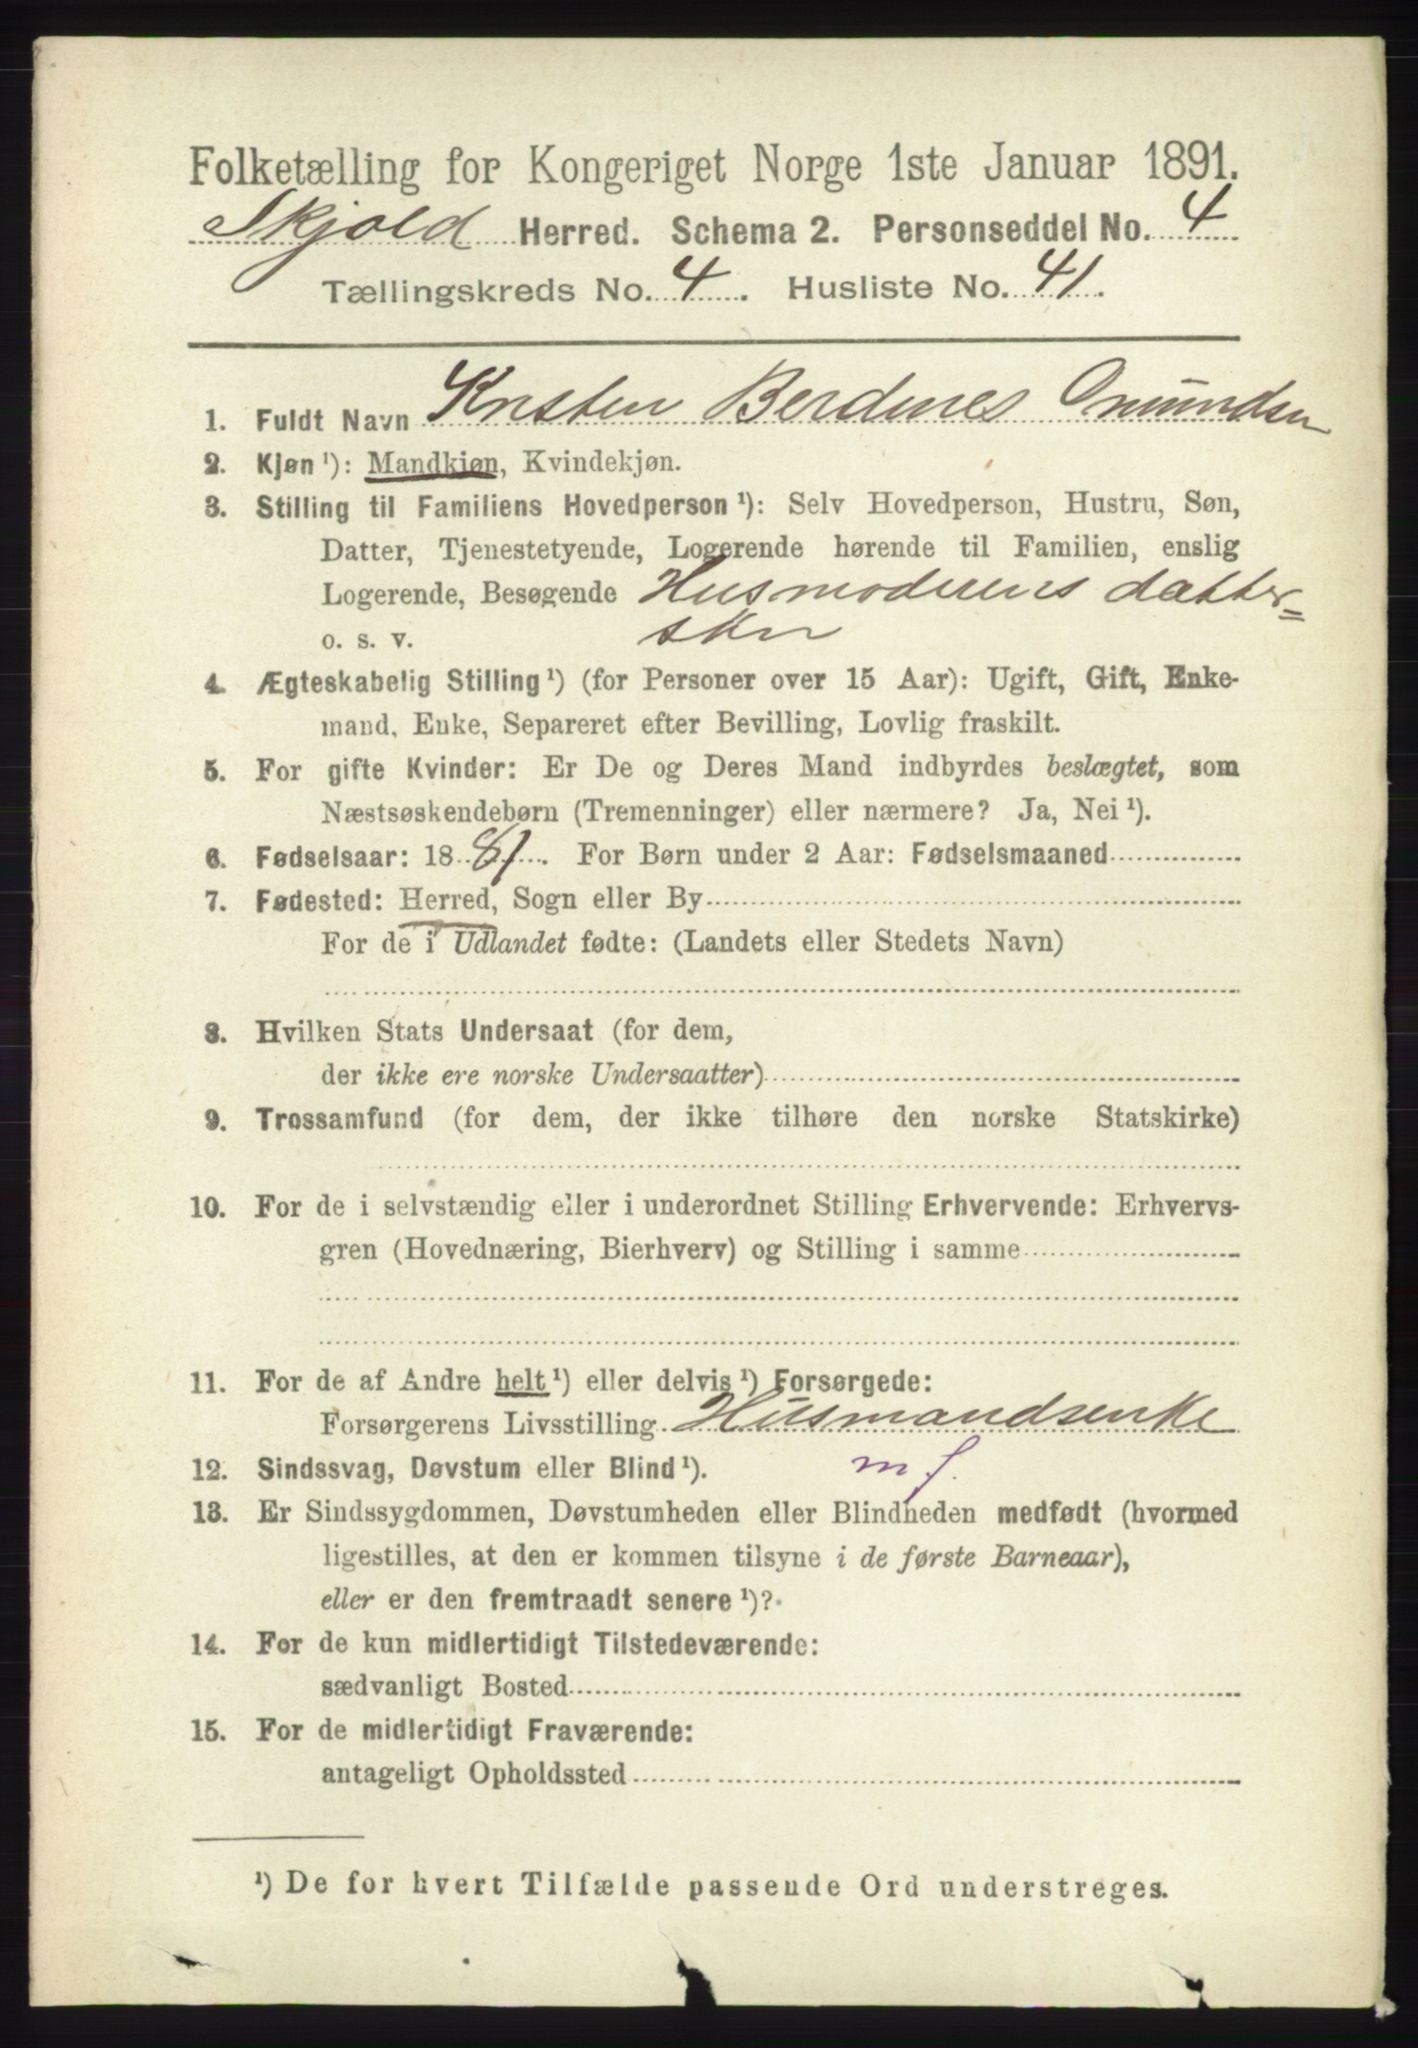 Folketælling for Kongeriget Norge 1ste Januar 1891.
Skjold Herred. Schema 2. Personseddel No. 4
Tællingskreds No. 4. Husliste No. 41.
1. Fuldt Navn Kristen Berdines Omundsen
2. Kjøn ¹): Mandkjøn, Kvindekjøn.
3. Stilling til Familiens Hovedperson ¹): Selv Hovedperson, Hustru, Søn,
Datter, Tjenestetyende, Logerende hørende til Familien, enslig
Logerende, Besøgende Husmoderens datter=
o. s. v. søn
4. Ægteskabelig Stilling ¹) (for Personer over 15 Aar): Ugift, Gift, Enke-
mand, Enke, Separeret efter Bevilling, Lovlig fraskilt.
5. For gifte Kvinder: Er De og Deres Mand indbyrdes beslægtet, som
Næstsøskendebørn (Tremenninger) eller nærmere? Ja, Nei ¹).
6. Fødselsaar: 1881. For Børn under 2 Aar: Fødselsmaaned
7. Fødested: Herred, Sogn eller By
For de i Udlandet fødte: (Landets eller Stedets Navn)
8. Hvilken Stats Undersaat (for dem,
der ikke ere norske Undersaatter)
9. Trossamfund (for dem, der ikke tilhøre den norske Statskirke)
10. For de i selvstændig eller i underordnet Stilling Erhvervende: Erhvervs-
gren (Hovednæring, Bierhverv) og Stilling i samme
11. For de af Andre helt ¹) eller delvis ¹) Forsørgede:
Forsørgerens Livsstilling Husmandsenke
12. Sindssvag, Døvstum eller Blind ¹). m f.
13. Er Sindssygdommen, Døvstumheden eller Blindheden medfødt (hvormed
ligestilles, at den er kommen tilsyne i de første Barneaar),
eller er den fremtraadt senere ¹)?
14. For de kun midlertidigt Tilstedeværende:
sædvanligt Bosted
15. For de midlertidigt Fraværende:
antageligt Opholdssted
¹) De for hvert Tilfælde passende Ord understreges.